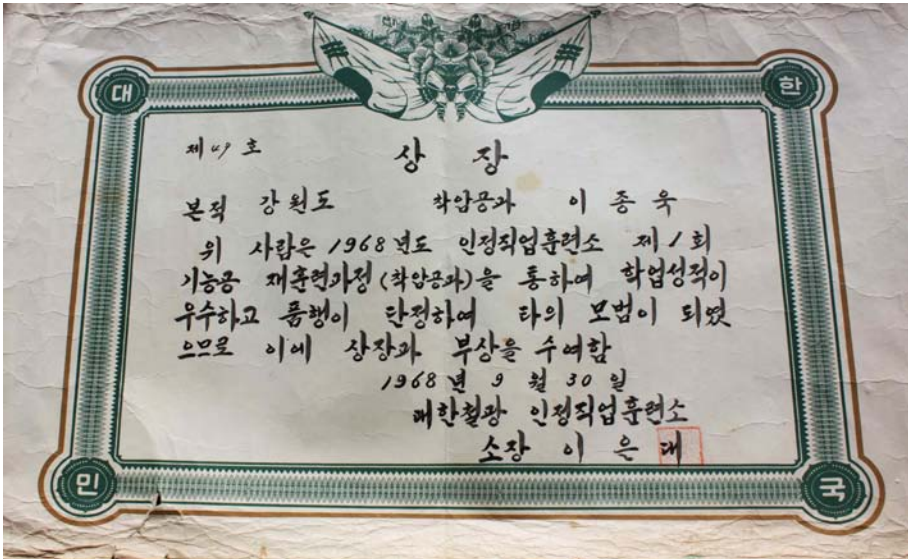 대 한
제 49 호 상 장
본적 강원도 착암공과 이 종 욱
위 사람은 1968년도 인정직업훈련소 제1회
기능공 재훈련과정(착암공과)을 통하여 학업성적이
우수하고 품행이 단정하여 타의 모범이 되였
으므로 이에 상장과 부상을 수여함
1968년 9월 30일
대한철광 인정직업훈련소
소장 이 은 대
민 국